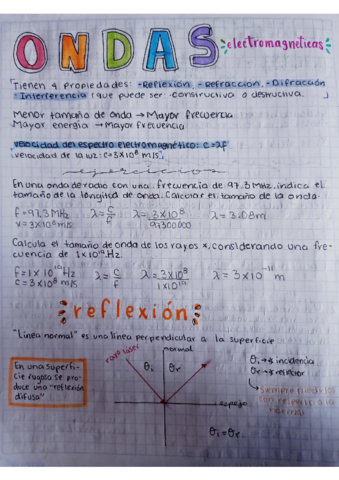 ONDAS electromagneticas
Tienen 4 propiedades: -Reflexión, -Refraccion, -Difracción
-Interferencia (que puede ser: constructiva o destructiva.
Menor tamaño de onda → Mayor frecuencia
Mayor energia → Mayor frecuencia
velocidad del espectro electromagnético: c=λf
velocidad de la luz: c=3×10⁸ m/s
ejercicios
En una onda de radio con una frecuencia de 97.3 MHz, indica el
tamaño de la longitud de onda. Calcular el tamaño de la onda.
f=97.3 MHz λ=v/f λ=3×10⁸/97300000 λ=3.08m
v=3×10⁸ m/s
Calcula el tamaño de onda de los rayos x, considerando una fre-
cuencia de 1×10¹⁹ Hz
f=1×10¹⁹ Hz λ=c/f λ=3×10⁸/1×10¹⁹ λ=3×10⁻¹¹ m
c=3×10⁸ m/s
reflexión
"Linea normal" es una linea perpendicular a la superficie
En una superfi-
cie rugosa se pro-
duce una "reflexión
difusa"
rayo laser
normal
θi θr
espejo
θi = θr
θi → incidencia
θr →
siempre
normal